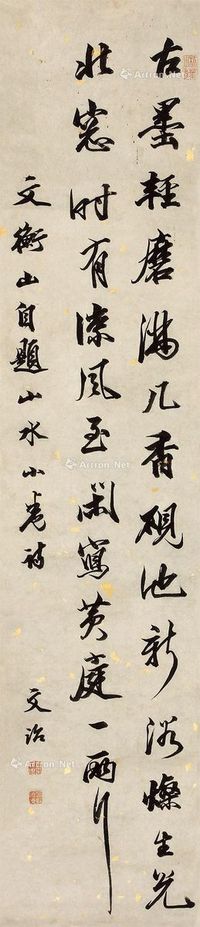 古墨轻磨满几香砚池新浴灿生光
北窗时有凉风至闲写黄庭一两行
文衡山自题山水小卷诗
文治
Artron.Net
Artron.Net
Artron.Net